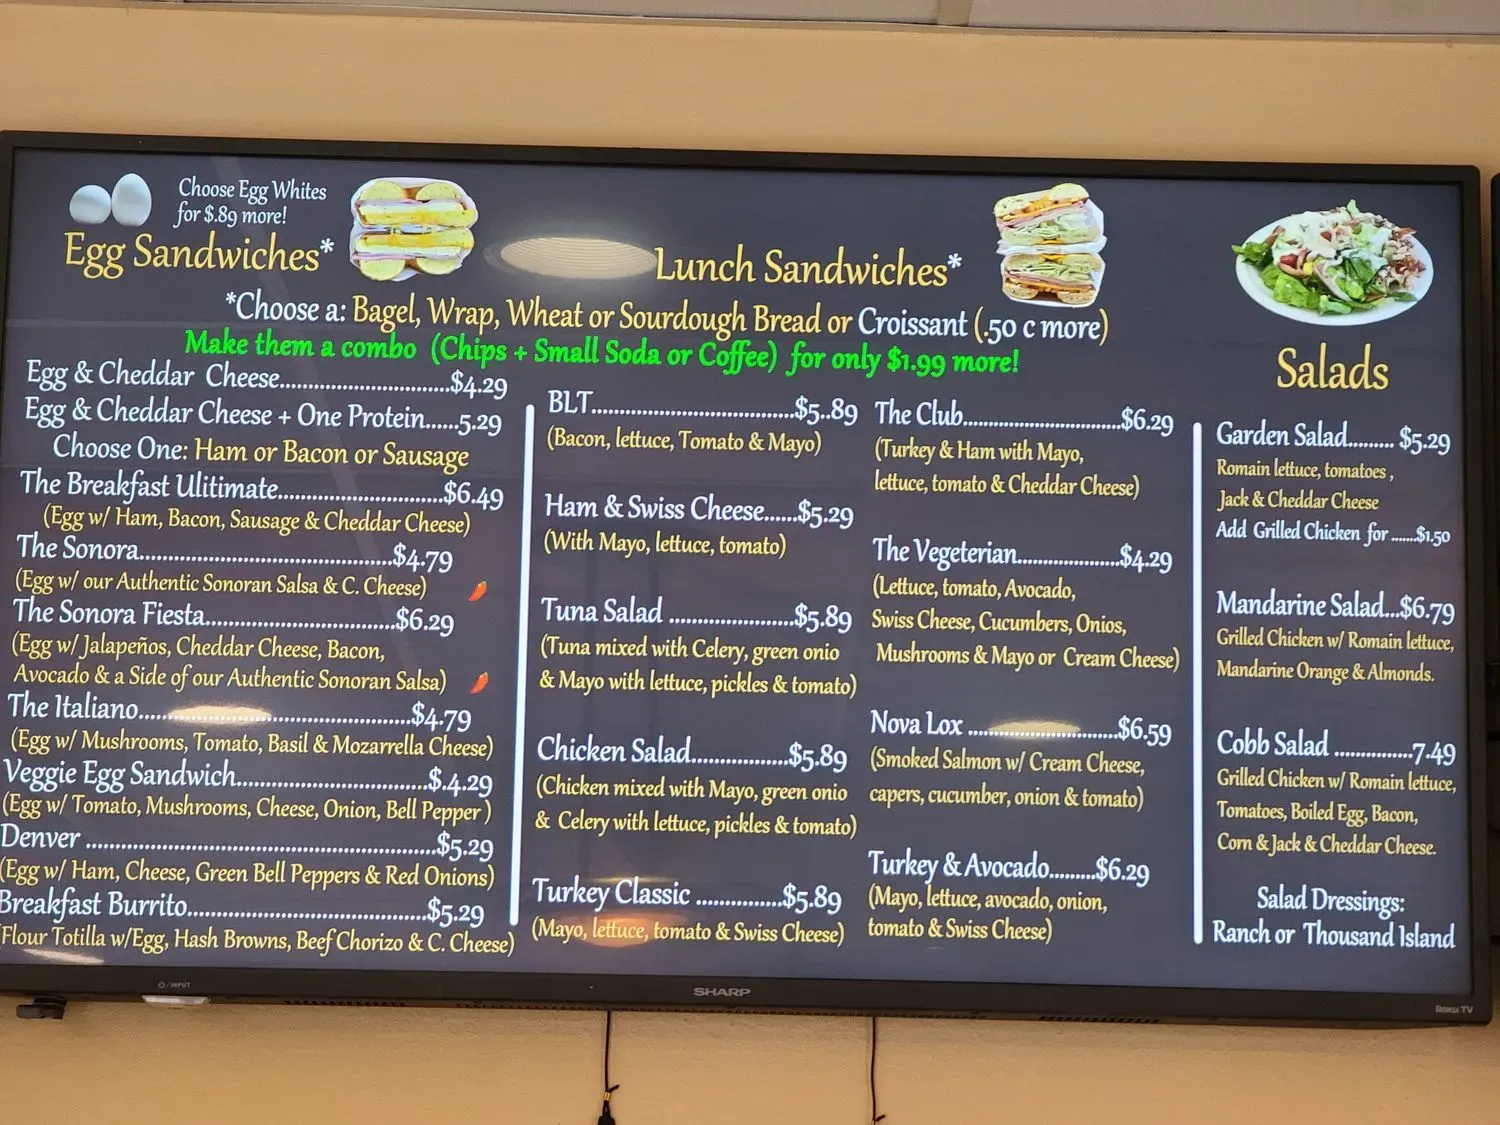 Choose Egg Whites
for $.89 more!
Egg Sandwiches*
Lunch Sandwiches*
*Choose a: Bagel, Wrap, Wheat or Sourdough Bread or Croissant (.50 c more)
Make them a combo (Chips + Small Soda or Coffee) for only $1.99 more!
Egg & Cheddar Cheese..............................$4.29
Egg & Cheddar Cheese + One Protein......5.29
Choose One: Ham or Bacon or Sausage
The Breakfast Ulitimate.............................$6.49
(Egg w/ Ham, Bacon, Sausage & Cheddar Cheese)
The Sonora............................................$4.79
(Egg w/ our Authentic Sonoran Salsa & C. Cheese)
The Sonora Fiesta.................................$6.29
(Egg w/ Jalapeños, Cheddar Cheese, Bacon,
Avocado & a Side of our Authentic Sonoran Salsa)
The Italiano...............................................$4.79
(Egg w/ Mushrooms, Tomato, Basil & Mozarrella Cheese)
Veggie Egg Sandwich.................................$.4.29
(Egg w/ Tomato, Mushrooms, Cheese, Onion, Bell Pepper )
Denver ............................................................$5.29
(Egg w/ Ham, Cheese, Green Bell Peppers & Red Onions)
Breakfast Burrito.........................................$5.29
(Flour Totilla w/Egg, Hash Browns, Beef Chorizo & C. Cheese)
BLT...................................$5..89
(Bacon, lettuce, Tomato & Mayo)
Ham & Swiss Cheese......$5.29
(With Mayo, lettuce, tomato)
Tuna Salad ......................$5.89
(Tuna mixed with Celery, green onio
& Mayo with lettuce, pickles & tomato)
Chicken Salad.................$5.89
(Chicken mixed with Mayo, green onio
& Celery with lettuce, pickles & tomato)
Turkey Classic ...............$5.89
(Mayo, lettuce, tomato & Swiss Cheese)
The Club...........................$6.29
(Turkey & Ham with Mayo,
lettuce, tomato & Cheddar Cheese)
The Vegeterian..................$4.29
(Lettuce, tomato, Avocado,
Swiss Cheese, Cucumbers, Onios,
Mushrooms & Mayo or Cream Cheese)
Nova Lox ..........................$6.59
(Smoked Salmon w/ Cream Cheese,
capers, cucumber, onion & tomato)
Turkey & Avocado.........$6.29
(Mayo, lettuce, avocado, onion,
tomato & Swiss Cheese)
Salads
Garden Salad......... $5.29
Romain lettuce, tomatoes ,
Jack & Cheddar Cheese
Add Grilled Chicken for ......$1.50
Mandarine Salad...$6.79
Grilled Chicken w/ Romain lettuce,
Mandarine Orange & Almonds.
Cobb Salad ..............7.49
Grilled Chicken w/ Romain lettuce,
Tomatoes, Boiled Egg, Bacon,
Corn & Jack & Cheddar Cheese.
Salad Dressings:
Ranch or Thousand Island
/INPUT
SHARP
Roku TV